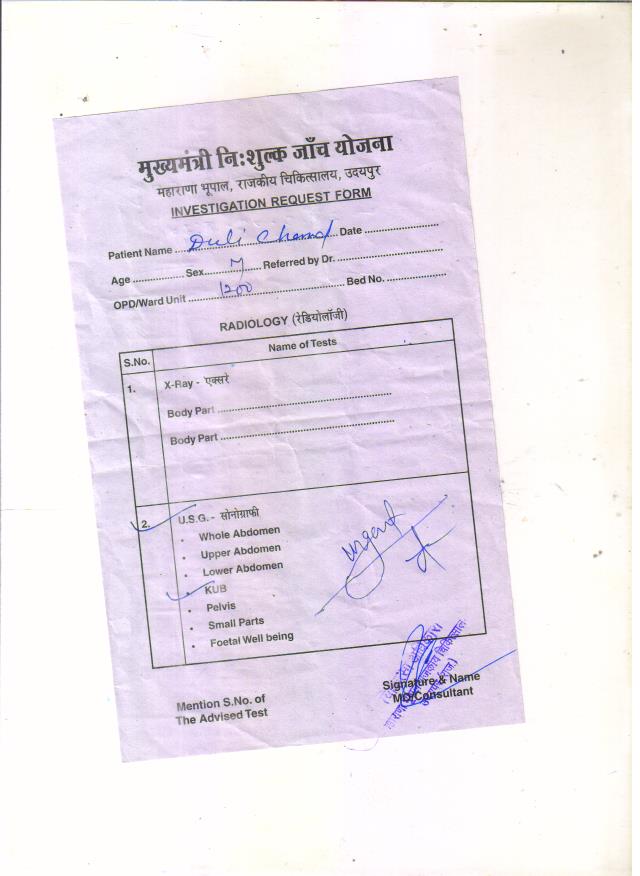 मुख्यमंत्री नि:शुल्क जाँच योजना
महाराणा भूपाल, राजकीय चिकित्सालय, उदयपुर
INVESTIGATION REQUEST FORM
Patient Name ........ Duli Chand ........ Date ........
Age ........ Sex ........ M ........ Referred by Dr. ........
OPD/Ward Unit ........ 1200 ........ Bed No. ........
RADIOLOGY (रेडियोलॉजी)
S.No. Name of Tests
1. X-Ray - एक्सरे
Body Part ........
Body Part ........
2. U.S.G. - सोनोग्राफी
• Whole Abdomen
• Upper Abdomen
• Lower Abdomen
KUB
• Pelvis
• Small Parts
• Foetal Well being
Urgent
Mention S.No. of
The Advised Test
Signature & Name
MO/Consultant
राजकीय चिकित्सालय
उदयपुर (राज.)